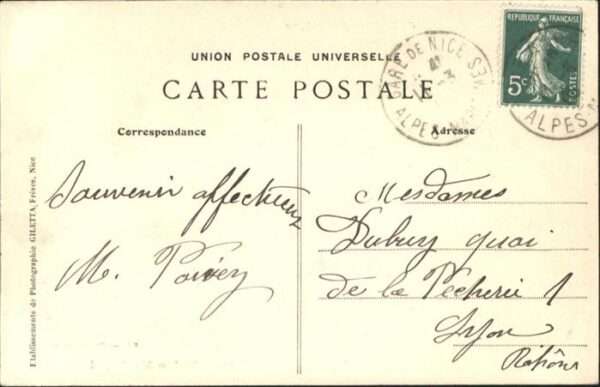 UNION POSTALE UNIVERSELLE
CARTE POSTALE
GARE DE NICE
ALPES-
RÉPUBLIQUE FRANÇAISE
5c
POSTES
ALPES-M
Correspondance
Adresse
Souvenir affectueux
M.
Mesdames
Dubuy quai
de la Pêcherie 1
Lyon
Rhône
Etablissements de Photographie GILETTA, Frères, Nice